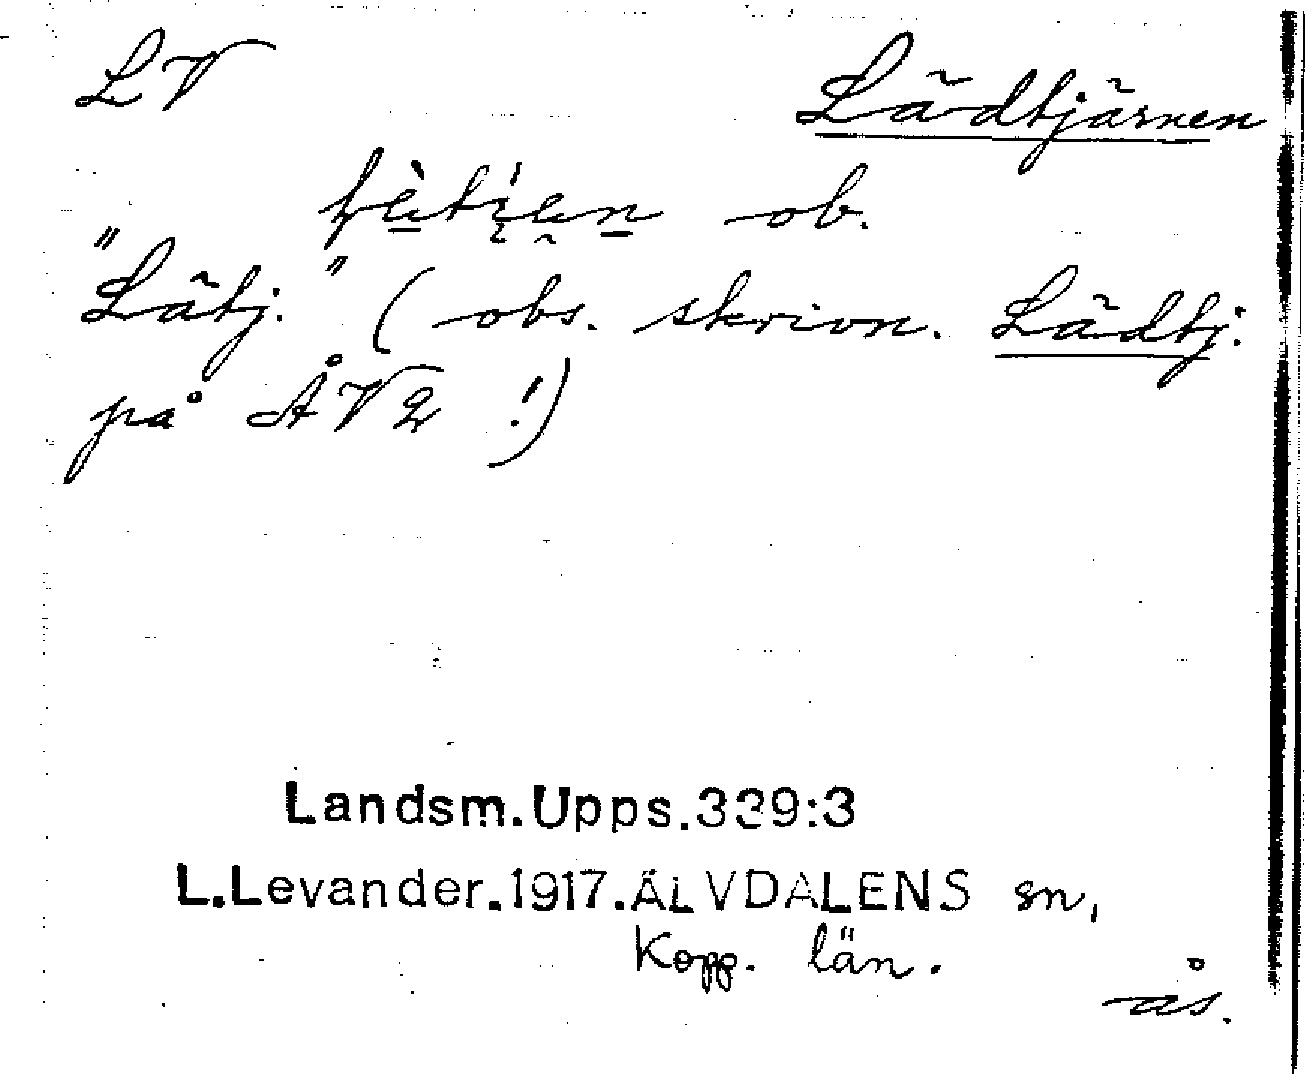 LV Lädtjärnen
ob.
"Lätj." (obs. skrivn. Lädtj.
på ÅV2!)
Landsm.Upps.339:3
L.Levander.1917.ÄLVDALENS sn,
Kopp. län.
ås.